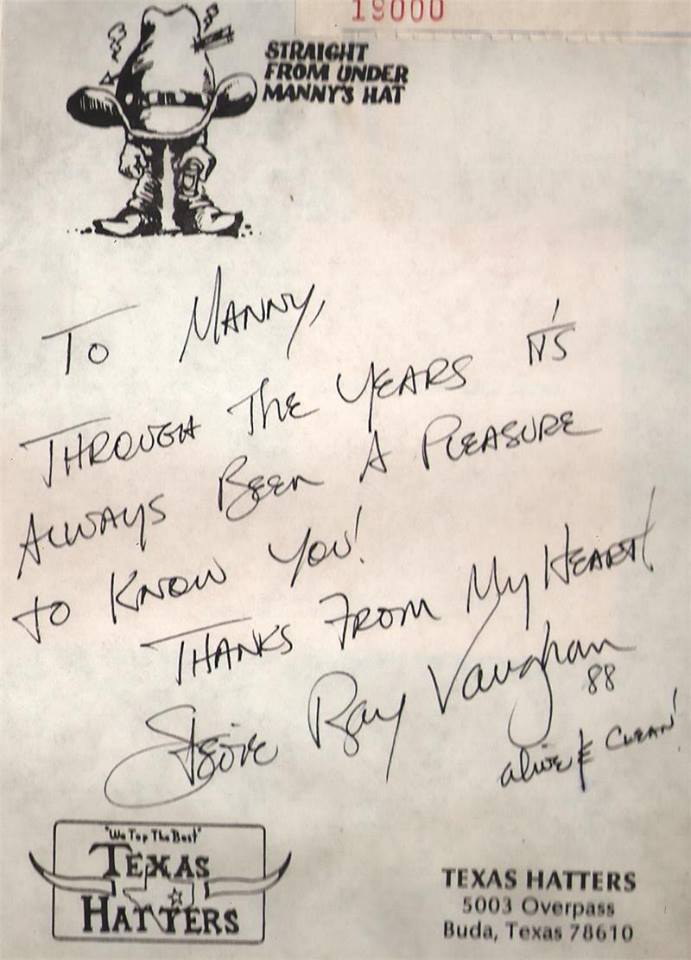 19000
STRAIGHT
FROM UNDER
MANNY'S HAT
To MANNY,
THROUGH THE YEARS IT'S
ALWAYS BEEN A PLEASURE
TO KNOW YOU!
THANKS FROM MY HEART!
Stevie Ray Vaughan
88
alive & CLEAN!
"We Top The Best"
TEXAS
HATTERS
TEXAS HATTERS
5003 Overpass
Buda, Texas 78610